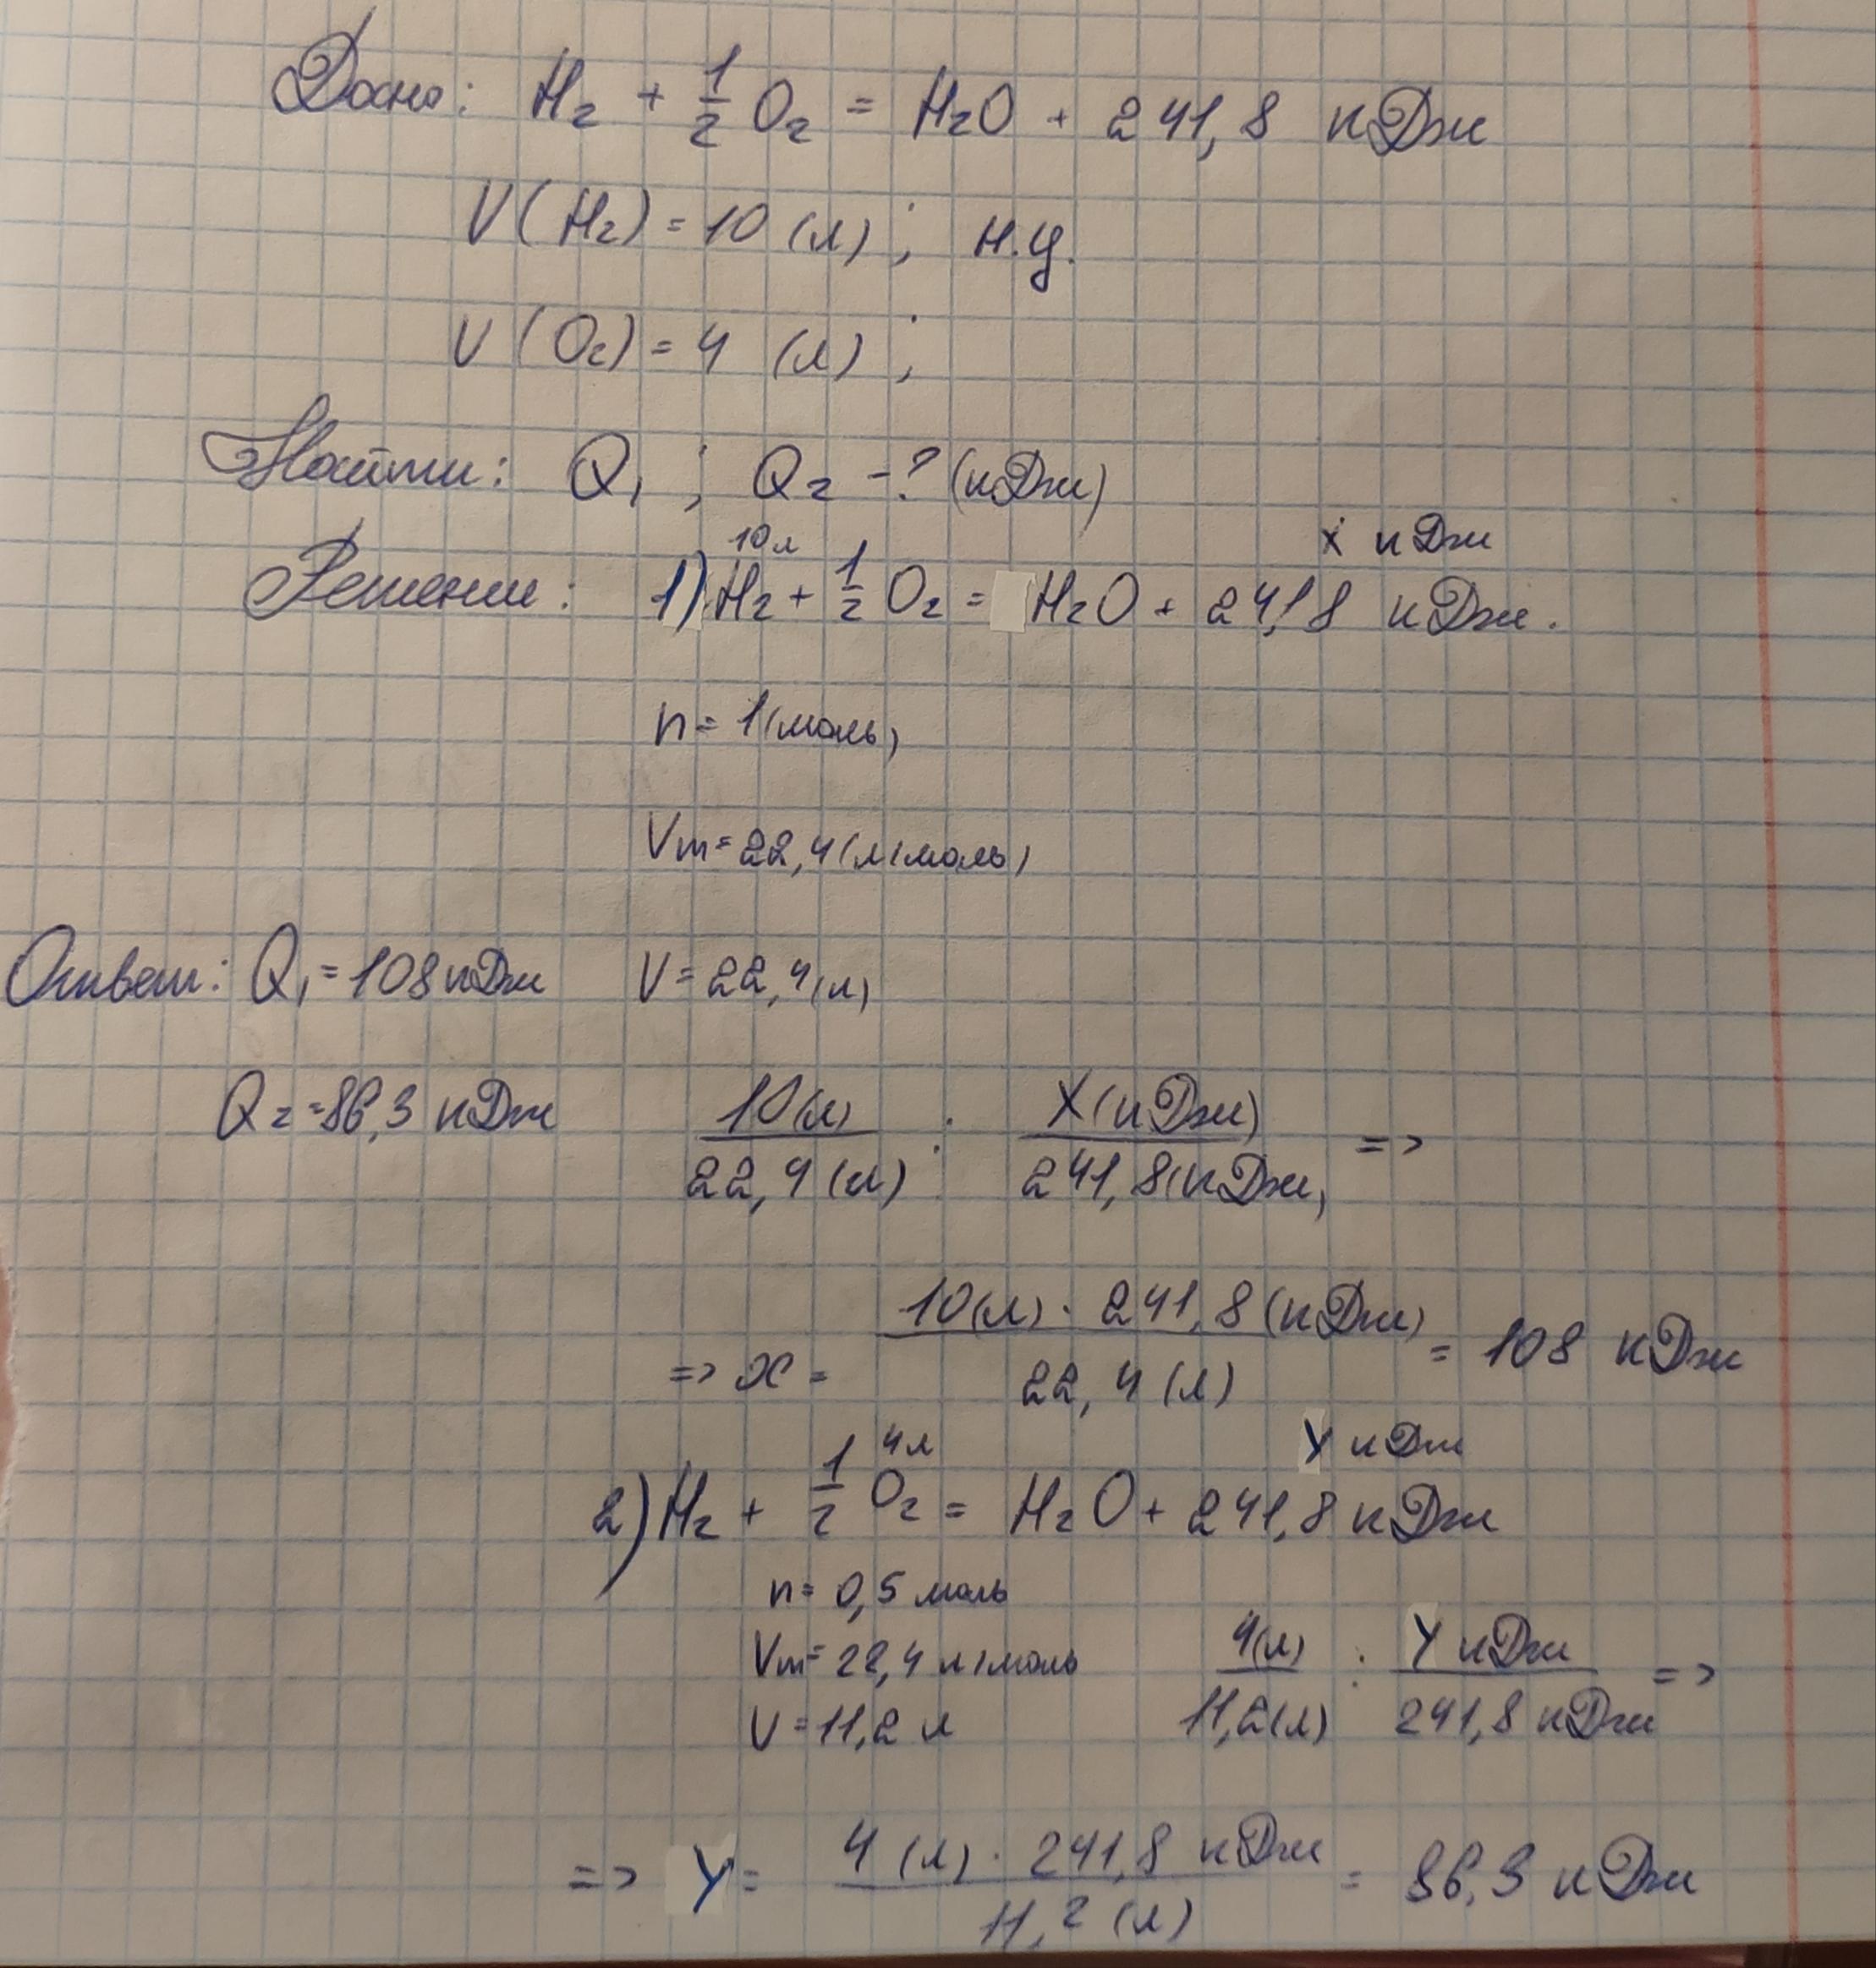 Дано: H₂ + 1/2 O₂ = H₂O + 241,8 кДж
V(H₂) = 10 (л); н.у.
V(O₂) = 4 (л);
Найти: Q₁; Q₂ -? (кДж)
10 л x кДж
Решение: 1) H₂ + 1/2 O₂ = H₂O + 241,8 кДж.
n = 1 (моль)
Vm = 22,4 (л/моль)
Ответ: Q₁ = 108 кДж V = 22,4 (л)
Q₂ = 86,3 кДж 10(л)/22,4(л) : X(кДж)/241,8(кДж) =>
=> x = 10(л) · 241,8 (кДж)/22,4 (л) = 108 кДж
4 л Y кДж
2) H₂ + 1/2 O₂ = H₂O + 241,8 кДж
n = 0,5 моль
Vm = 22,4 л/моль 4(л)/11,2(л) : Y кДж/241,8 кДж =>
V = 11,2 л
=> Y = 4 (л) · 241,8 кДж/11,2 (л) = 86,3 кДж